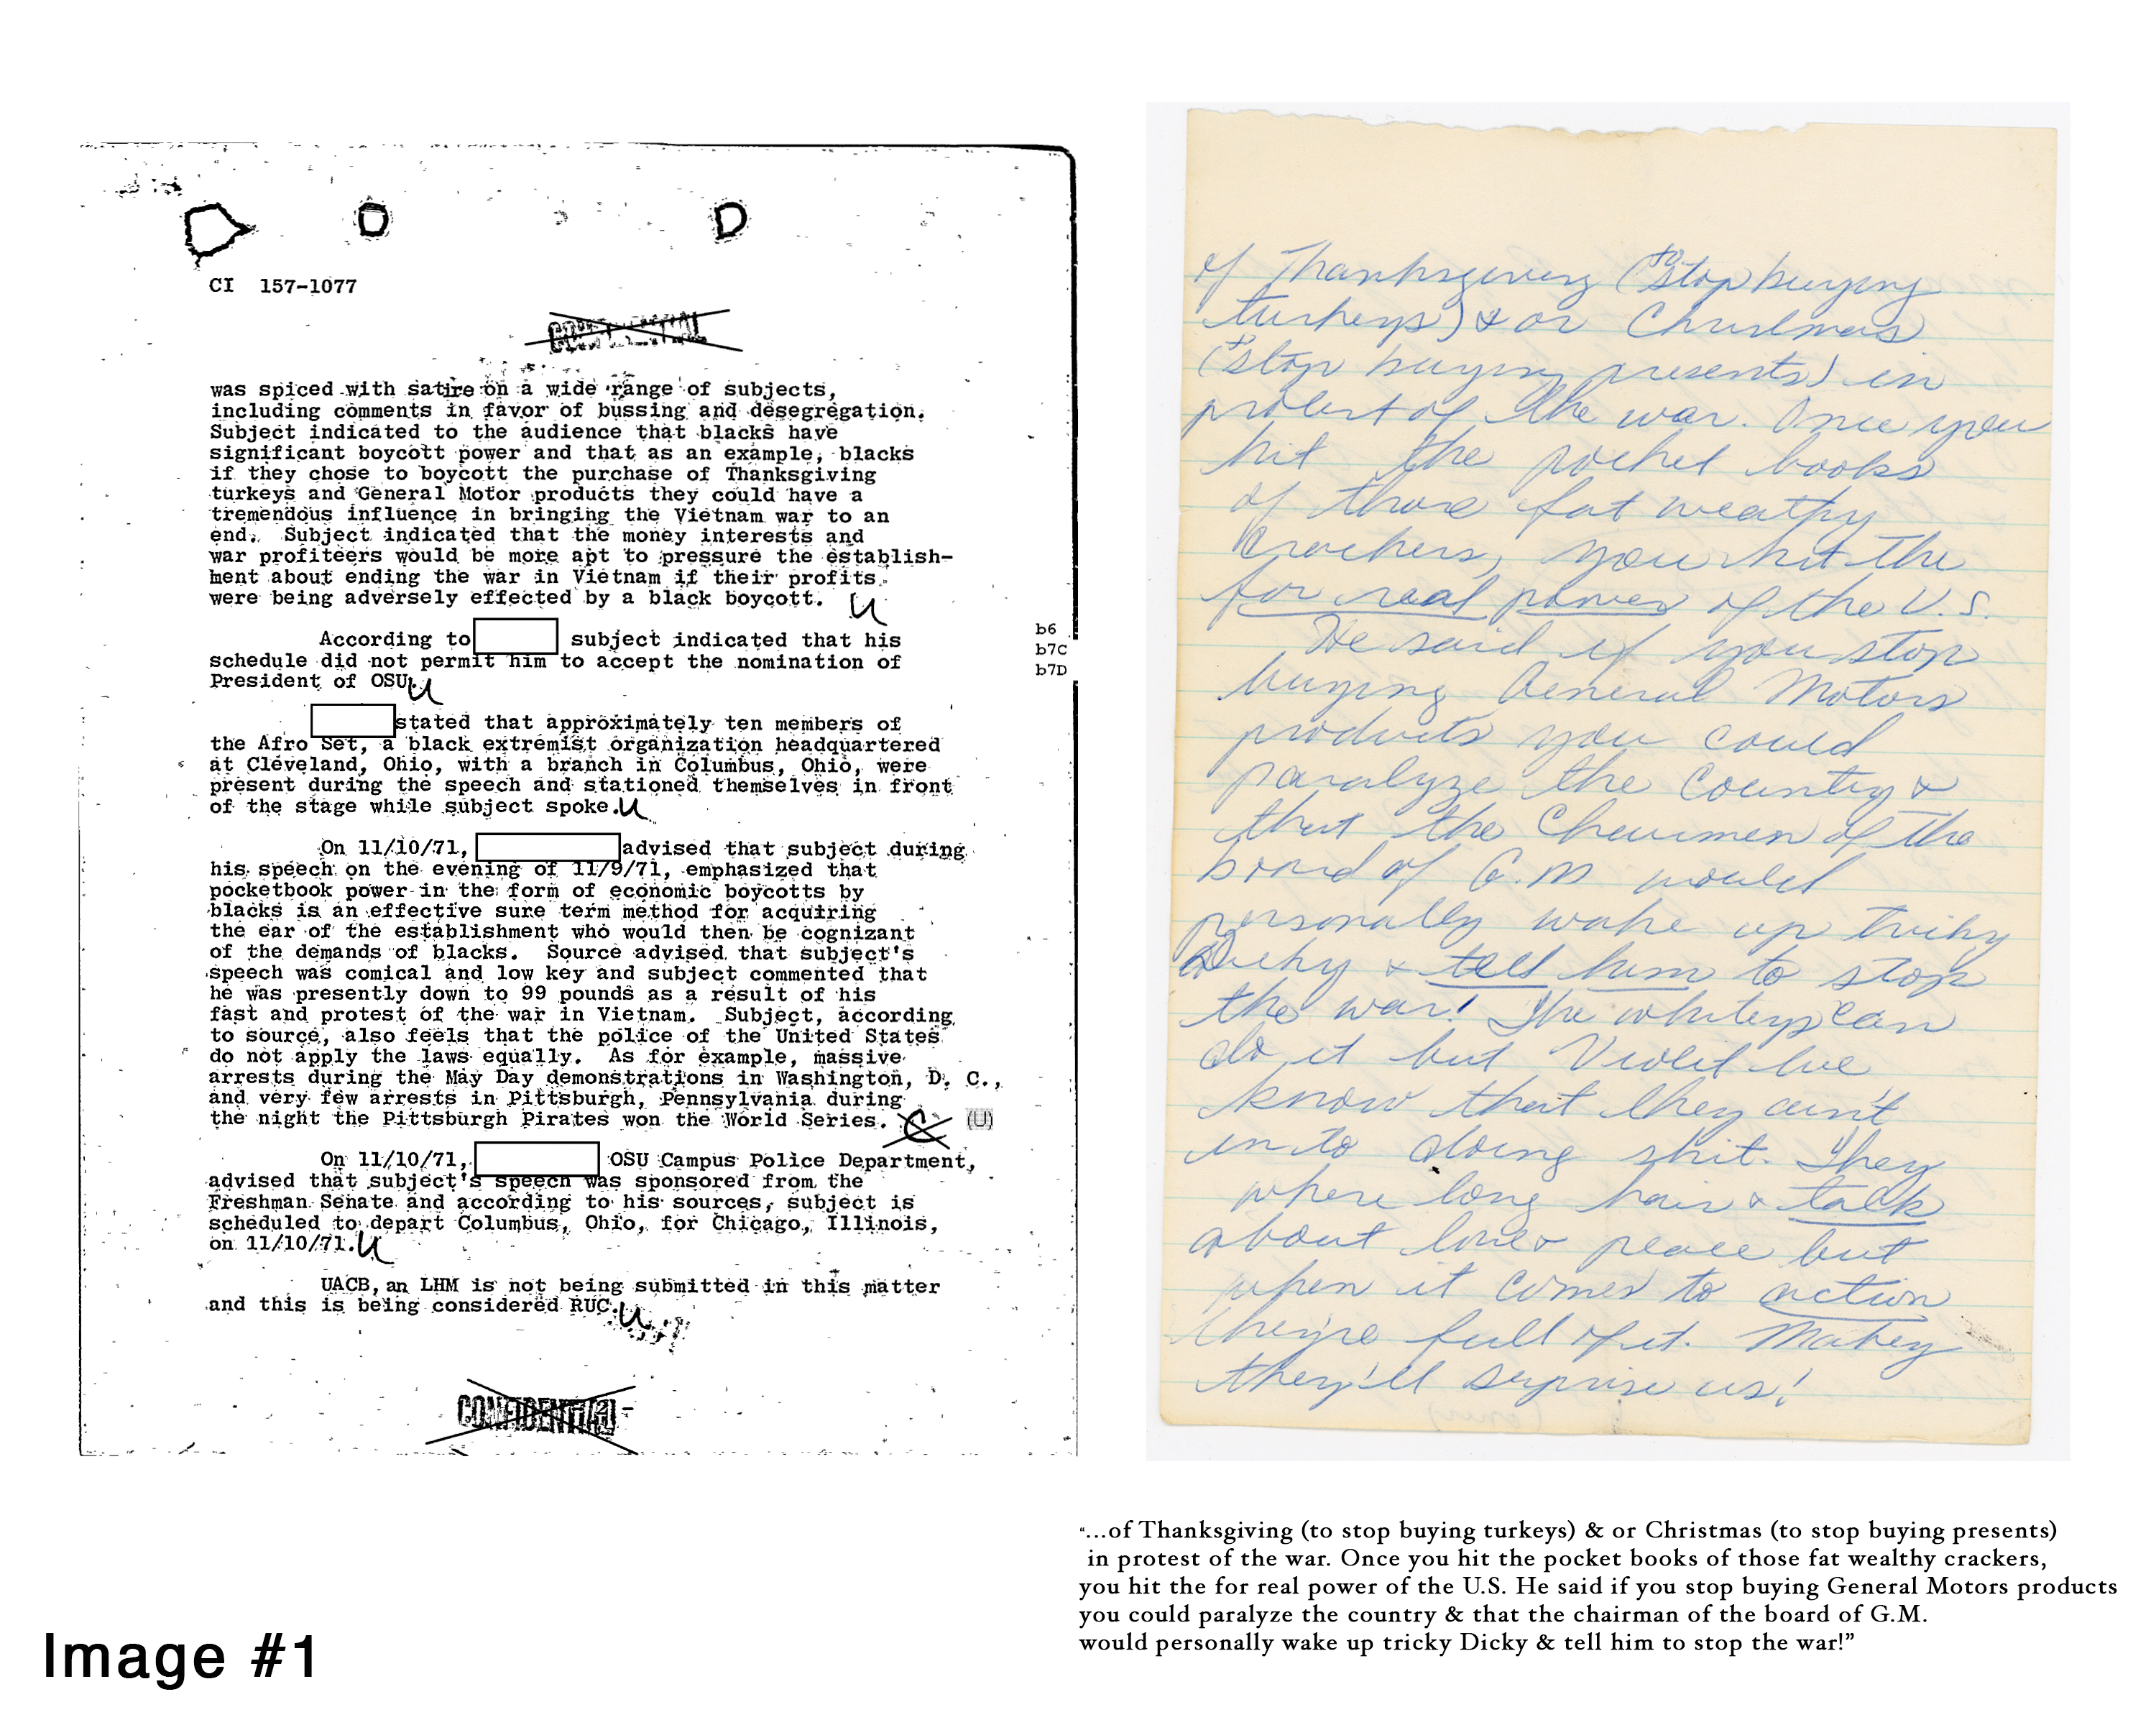 CI 157-1077
CONFIDENTIAL
was spiced with satire on a wide range of subjects,
including comments in favor of bussing and desegregation.
Subject indicated to the audience that blacks have
significant boycott power and that as an example, blacks
if they chose to boycott the purchase of Thanksgiving
turkeys and General Motor products they could have a
tremendous influence in bringing the Vietnam war to an
end. Subject indicated that the money interests and
war profiteers would be more apt to pressure the establish-
ment about ending the war in Vietnam if their profits
were being adversely effected by a black boycott. U
According to subject indicated that his
schedule did not permit him to accept the nomination of
President of OSU. U
b6
b7C
b7D
stated that approximately ten members of
the Afro Set, a black extremist organization headquartered
at Cleveland, Ohio, with a branch in Columbus, Ohio, were
present during the speech and stationed themselves in front
of the stage while subject spoke. U
On 11/10/71, advised that subject during
his speech on the evening of 11/9/71, emphasized that
pocketbook power in the form of economic boycotts by
blacks is an effective sure term method for acquiring
the ear of the establishment who would then be cognizant
of the demands of blacks. Source advised that subject's
speech was comical and low key and subject commented that
he was presently down to 99 pounds as a result of his
fast and protest of the war in Vietnam. Subject, according
to source, also feels that the police of the United States
do not apply the laws equally. As for example, massive
arrests during the May Day demonstrations in Washington, D. C.,
and very few arrests in Pittsburgh, Pennsylvania during
the night the Pittsburgh Pirates won the World Series. C (U)
On 11/10/71, OSU Campus Police Department,
advised that subject's speech was sponsored from the
Freshman Senate and according to his sources, subject is
scheduled to depart Columbus, Ohio, for Chicago, Illinois,
on 11/10/71. U
UACB, an LHM is not being submitted in this matter
and this is being considered RUC. U
CONFIDENTIAL
of Thanksgiving (to stop buying
turkeys) & or Christmas
(to stop buying presents) in
protest of the war. Once you
hit the pocket books
of those fat weathy
crackers, you hit the
for real power of the U.S.
He said if you stop
buying General Motors
products you could
paralyze the Country &
that the Chairmen of the
board of G.M would
personally wake up tricky
Dicky & tell him to stop
the war! The whiteys can
do it but Violet we
know that they ain't
into doing shit. They
where long hair & talk
about love & peace but
when it comes to action
they're full of it. Mabey
they'll surprise us!
“...of Thanksgiving (to stop buying turkeys) & or Christmas (to stop buying presents)
in protest of the war. Once you hit the pocket books of those fat wealthy crackers,
you hit the for real power of the U.S. He said if you stop buying General Motors products
you could paralyze the country & that the chairman of the board of G.M.
would personally wake up tricky Dicky & tell him to stop the war!”
Image #1